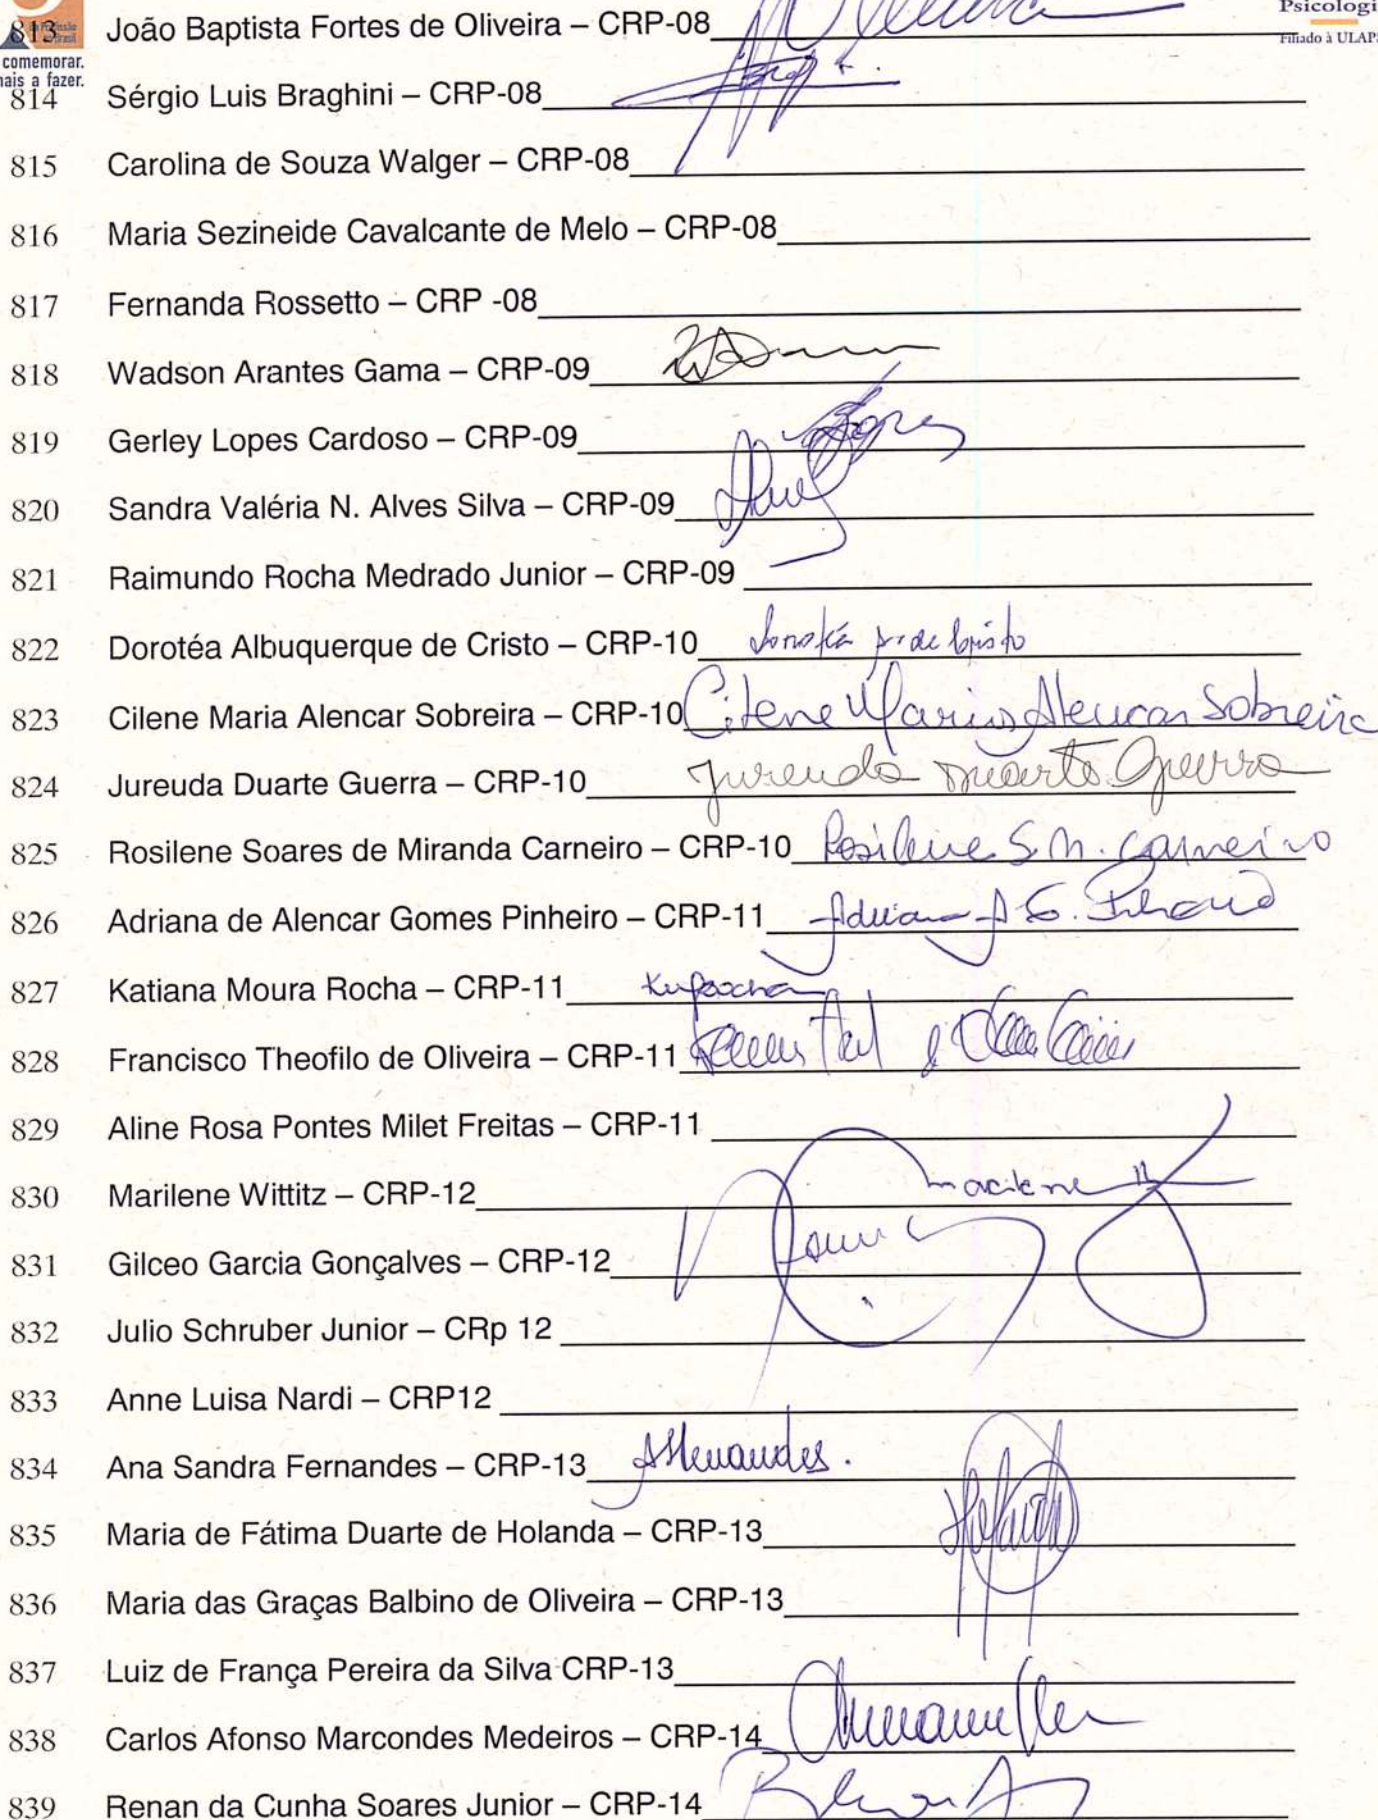 Psicologi
813 João Baptista Fortes de Oliveira – CRP-08
Filiado à ULAPS
comemorar.
mais a fazer.
814 Sérgio Luis Braghini – CRP-08
815 Carolina de Souza Walger – CRP-08
816 Maria Sezineide Cavalcante de Melo – CRP-08
817 Fernanda Rossetto – CRP -08
818 Wadson Arantes Gama – CRP-09
819 Gerley Lopes Cardoso – CRP-09
820 Sandra Valéria N. Alves Silva – CRP-09
821 Raimundo Rocha Medrado Junior – CRP-09
822 Dorotéa Albuquerque de Cristo – CRP-10
823 Cilene Maria Alencar Sobreira – CRP-10 Cilene Maria Alencar Sobreira
824 Jureuda Duarte Guerra – CRP-10 Jureuda Duarte Guerra
825 Rosilene Soares de Miranda Carneiro – CRP-10 Rosilene S. M. Carneiro
826 Adriana de Alencar Gomes Pinheiro – CRP-11 Adriana A G. Pinheiro
827 Katiana Moura Rocha – CRP-11
828 Francisco Theofilo de Oliveira – CRP-11
829 Aline Rosa Pontes Milet Freitas – CRP-11
830 Marilene Wittitz – CRP-12 Marilene
831 Gilceo Garcia Gonçalves – CRP-12
832 Julio Schruber Junior – CRp 12
833 Anne Luisa Nardi – CRP12
834 Ana Sandra Fernandes – CRP-13
835 Maria de Fátima Duarte de Holanda – CRP-13
836 Maria das Graças Balbino de Oliveira – CRP-13
837 Luiz de França Pereira da Silva CRP-13
838 Carlos Afonso Marcondes Medeiros – CRP-14
839 Renan da Cunha Soares Junior – CRP-14